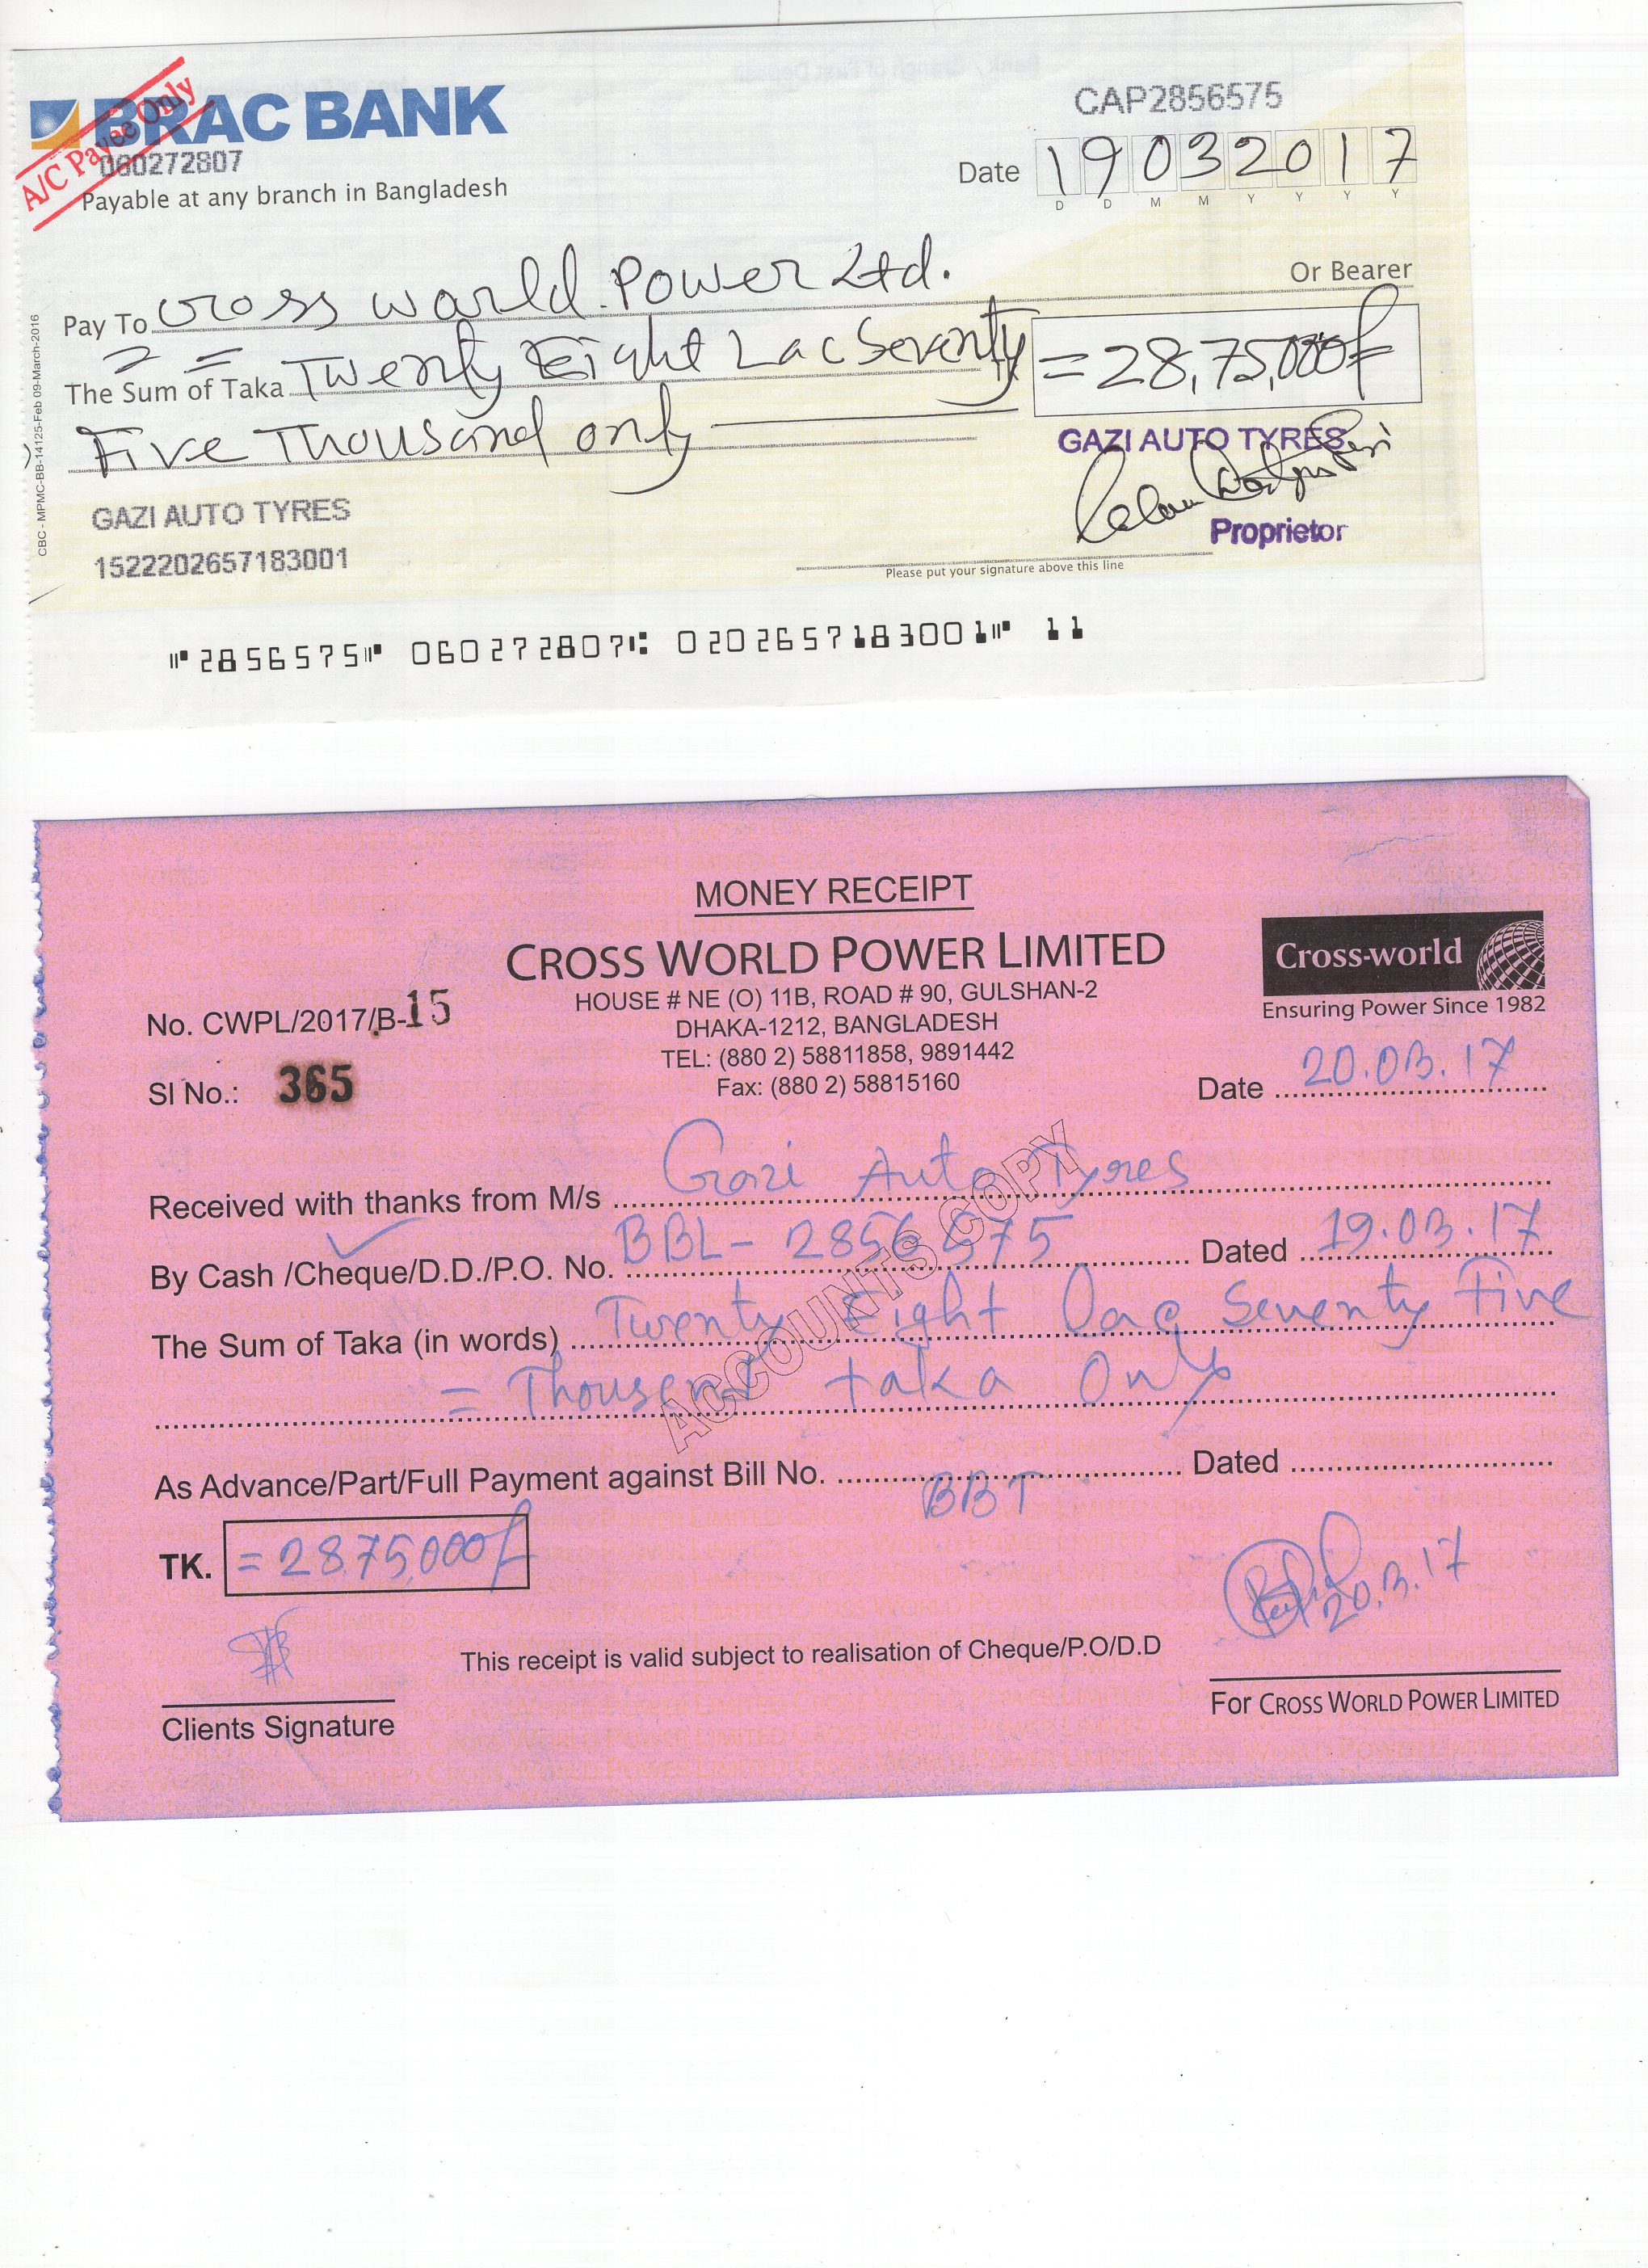 BRAC BANK
A/C Payee Only
060272807
Payable at any branch in Bangladesh
CAP2856575
Date 19032017
D D M M Y Y Y Y
Pay To Cross World Power Ltd. Or Bearer
The Sum of Taka Twenty Eight Lac Seventy =28,75,000/=
Five Thousand only
GAZI AUTO TYRES
Proprietor
GAZI AUTO TYRES
1522202657183001
Please put your signature above this line
CBC - MPMC-BB-14125-Feb 09-March-2016
⑈2856575⑈ 060272807⑆ 0202657183001⑈ 11
MONEY RECEIPT
CROSS WORLD POWER LIMITED
HOUSE # NE (O) 11B, ROAD # 90, GULSHAN-2
DHAKA-1212, BANGLADESH
TEL: (880 2) 58811858, 9891442
Fax: (880 2) 58815160
Cross-world
Ensuring Power Since 1982
No. CWPL/2017/B-15
SI No.: 365
Date 20.03.17
Received with thanks from M/s Gazi Auto Tyres
By Cash /Cheque/D.D./P.O. No. BBL- 2856575 Dated 19.03.17
The Sum of Taka (in words) Twenty Eight Lac Seventy Five
= Thousent taka Only
ACCOUNTS COPY
As Advance/Part/Full Payment against Bill No. BBT Dated
TK. =2875,000/
20.3.17
This receipt is valid subject to realisation of Cheque/P.O/D.D
Clients Signature
For CROSS WORLD POWER LIMITED